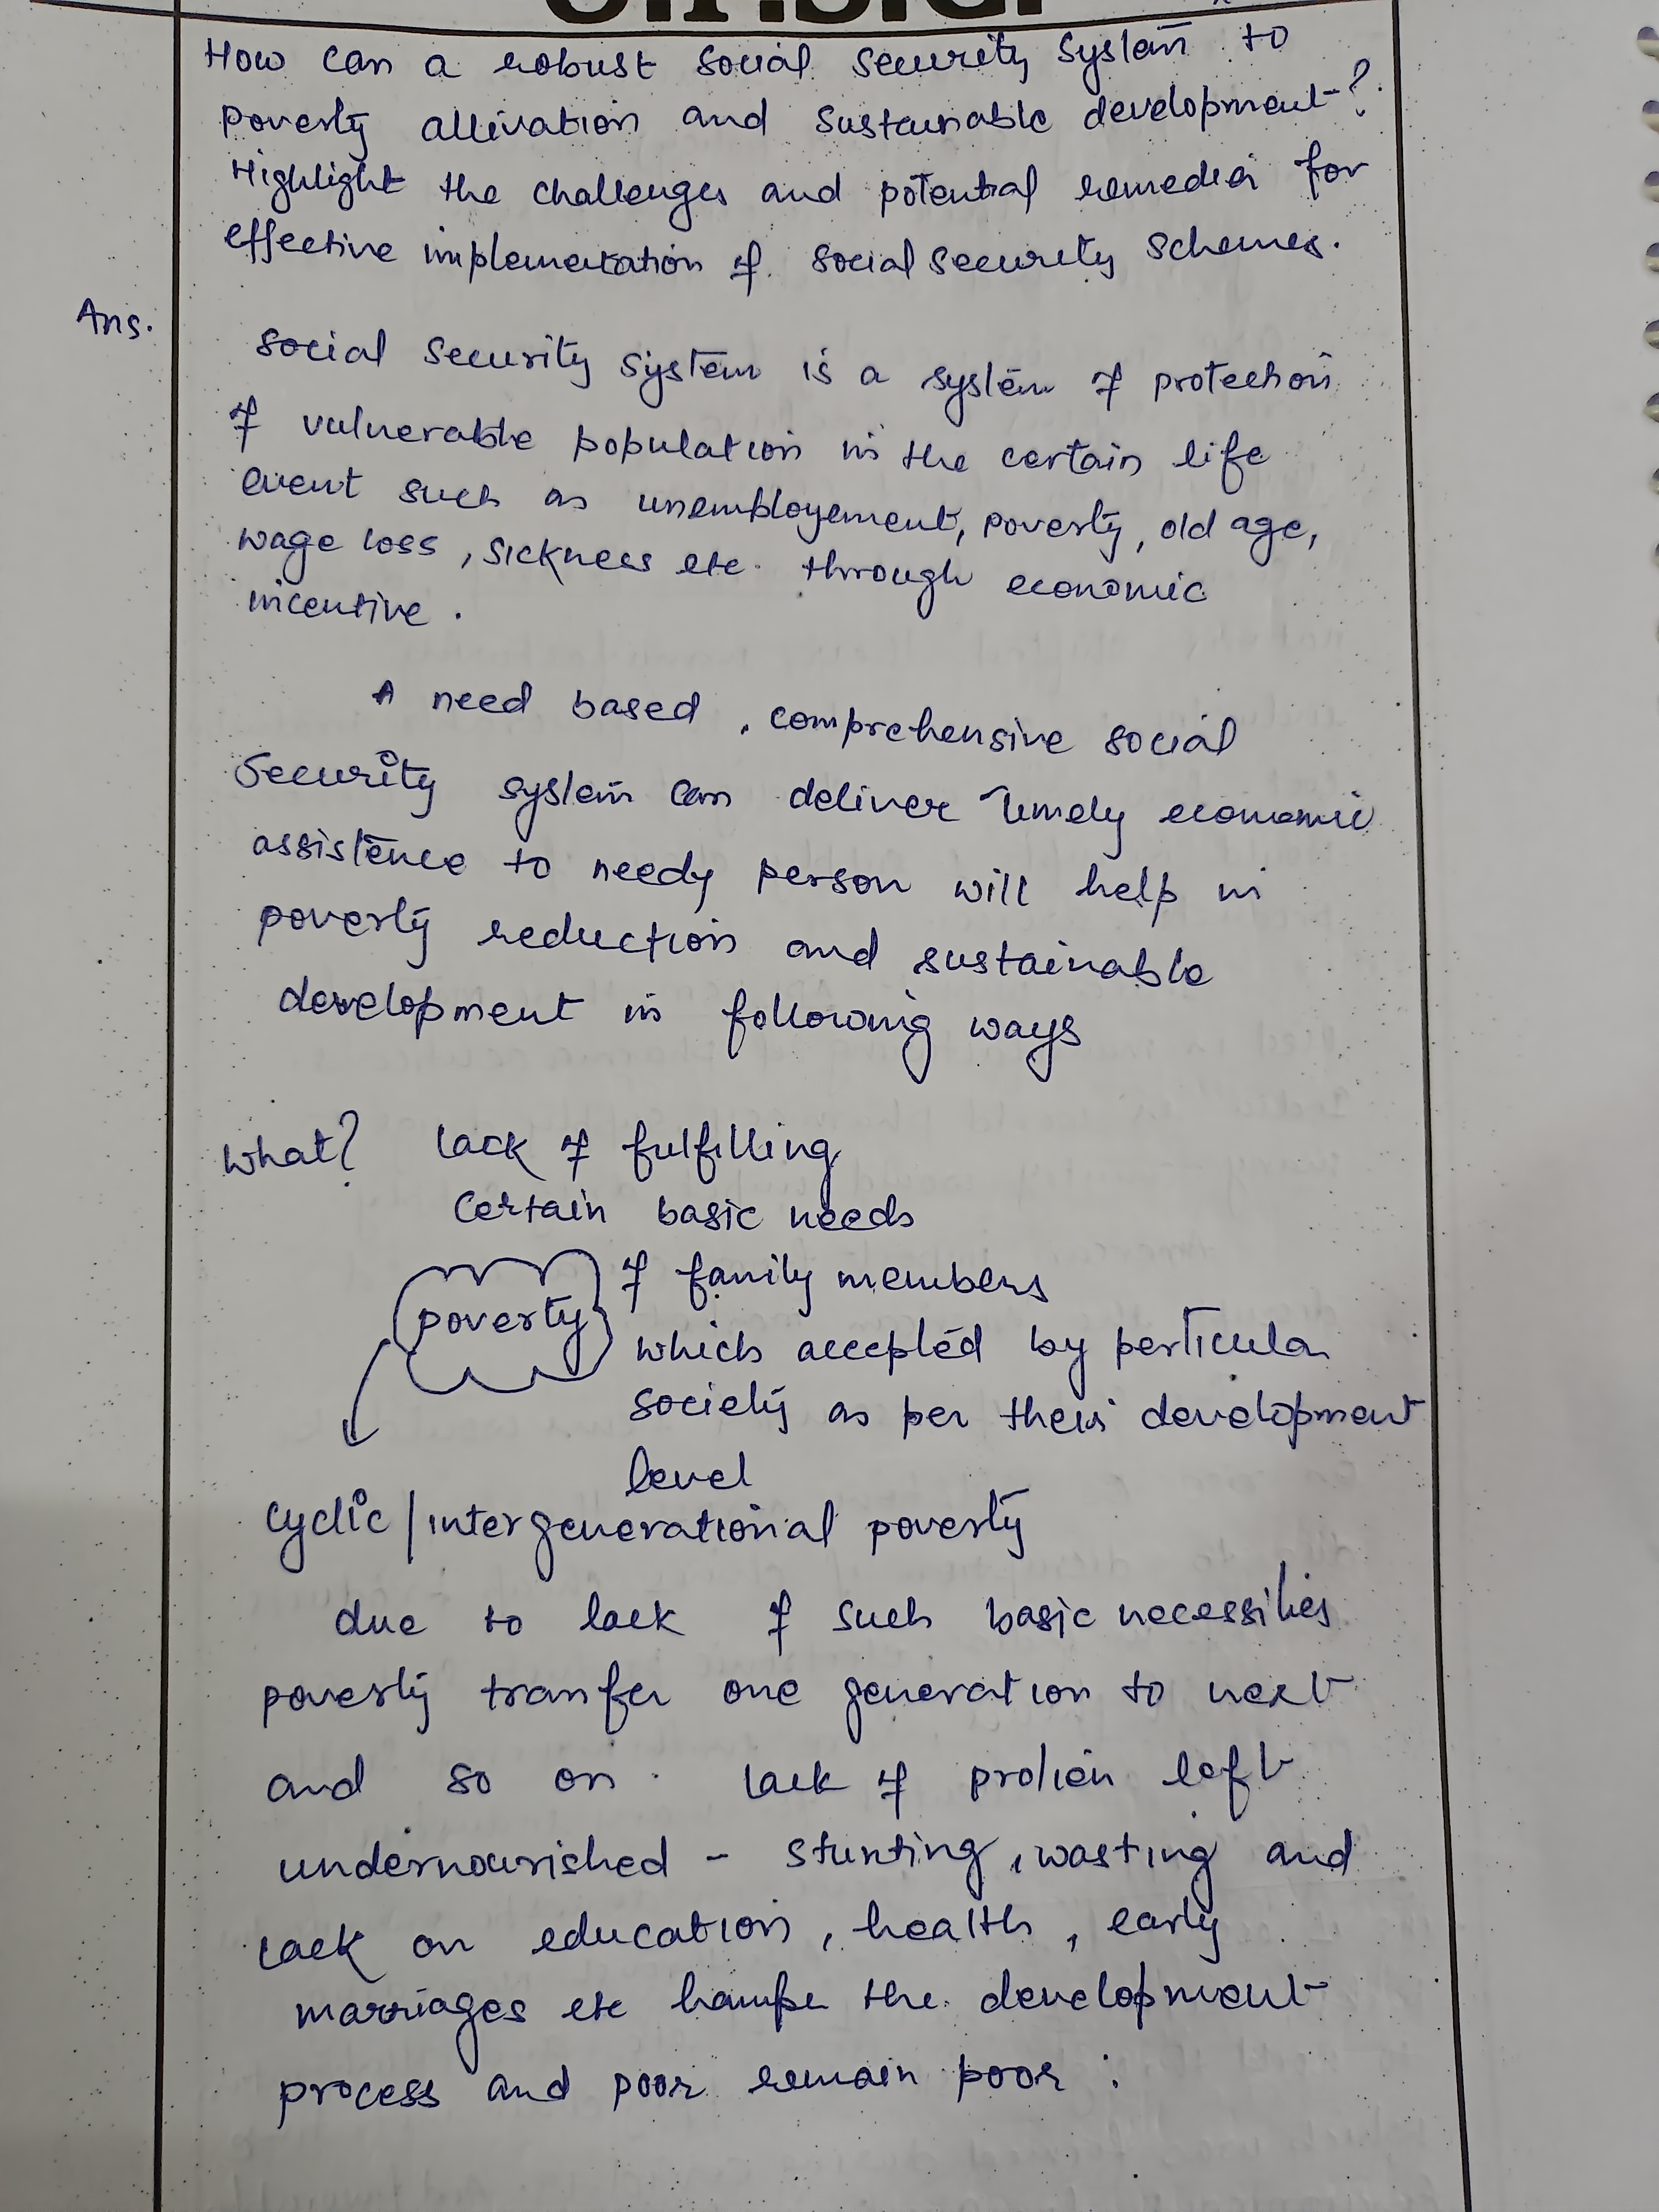 How can a robust social security system to
poverty allivation and sustainable development?
Highlight the challenges and potential remedies for
effective implementation of social security schemes.
Ans.
Social security system is a system of protection
of vulnerable population in the certain life
event such as unemployement, poverty, old age,
wage loss, sickness etc. through economic
incentive.
A need based, comprehensive social
security system can deliver timely economic
assistence to needy person will help in
poverty reduction and sustainable
development in following ways
What? lack of fulfilling
certain basic needs
of family members
poverty
which accepted by perticular
society as per their development
level
cyclic/intergenerational poverty
due to lack of such basic necessities
poverty transfer one generation to next
and so on. lack of protien left
undernourished - stunting, wasting and
lack on education, health, early
marriages etc hamper the development
process and poor remain poor: